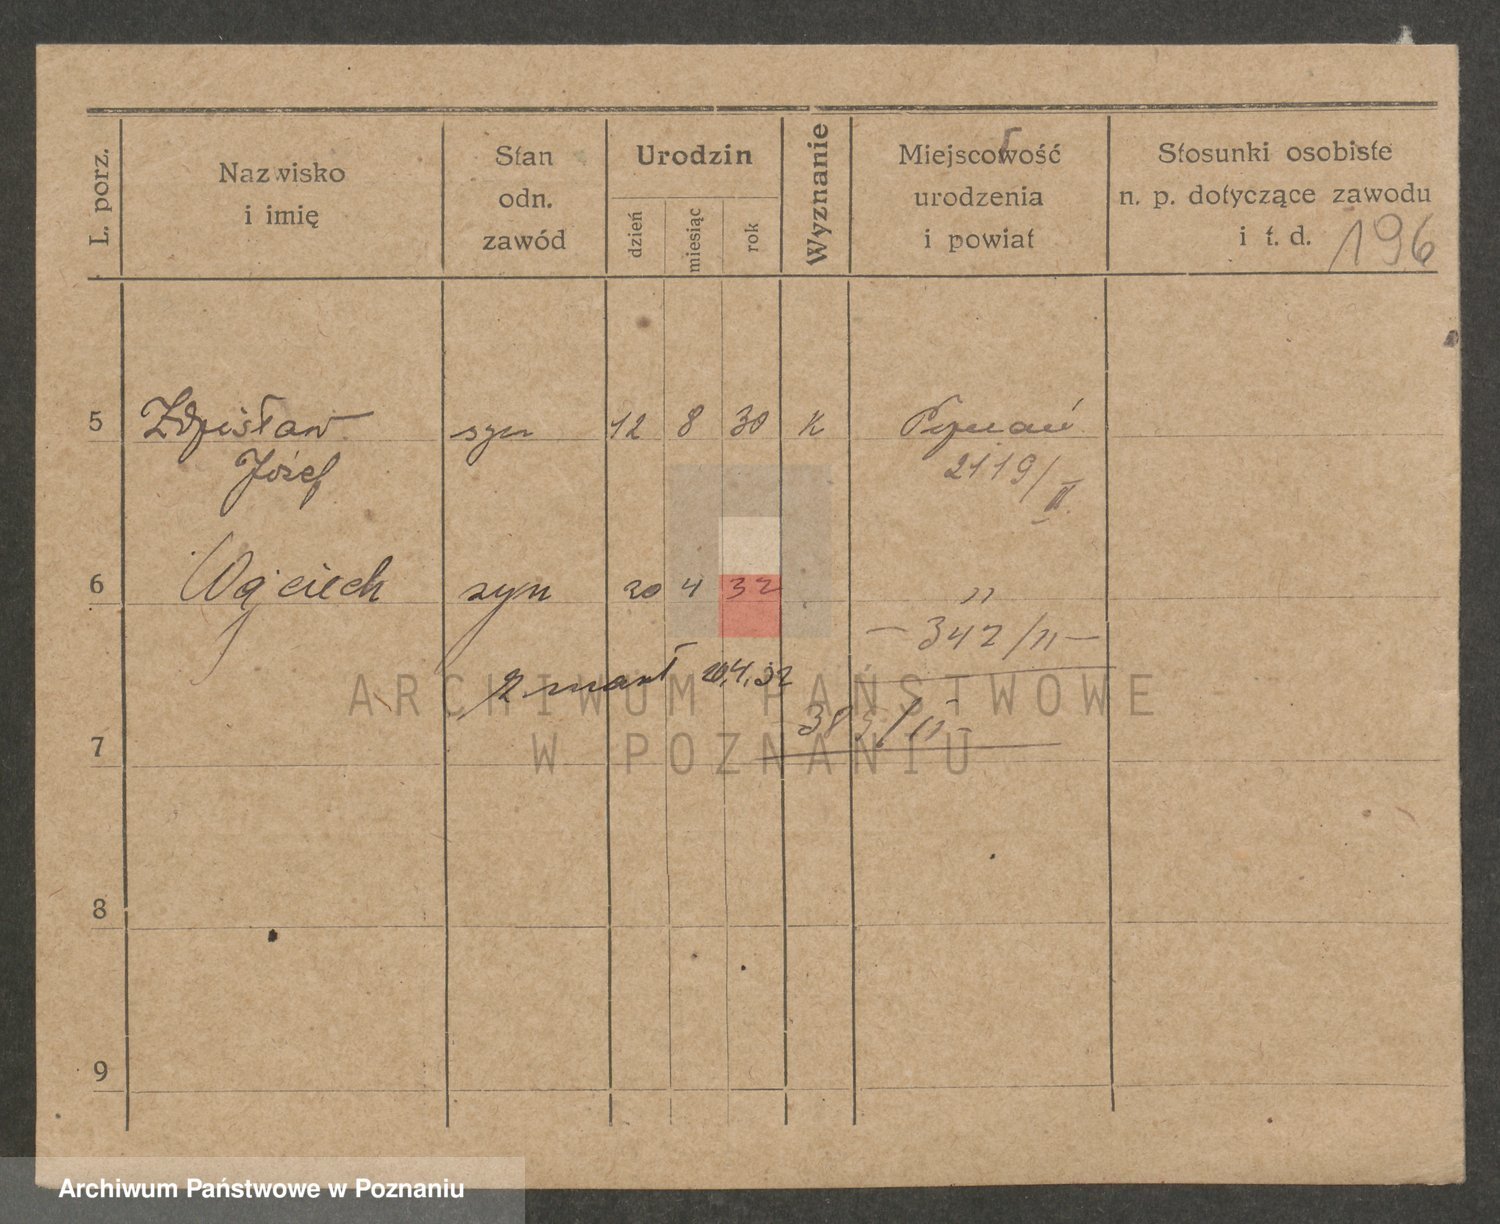 L. porz.
Nazwisko
i imię
Stan
odn.
zawód
Urodzin
dzień
miesiąc
rok
Wyznanie
Miejscowość
urodzenia
i powiat
Stosunki osobiste
n. p. dotyczące zawodu
i t. d.
196
5 Zdzisław syn 12 8 30 K Poznań
Józef 2119/III.
6 Wojciech syn 20 4 32 "
— 342/II —
zmarł 20,4,32
383/II –
ARCHIWUM PAŃSTWOWE
W POZNANIU
7
8
9
Archiwum Państwowe w Poznaniu